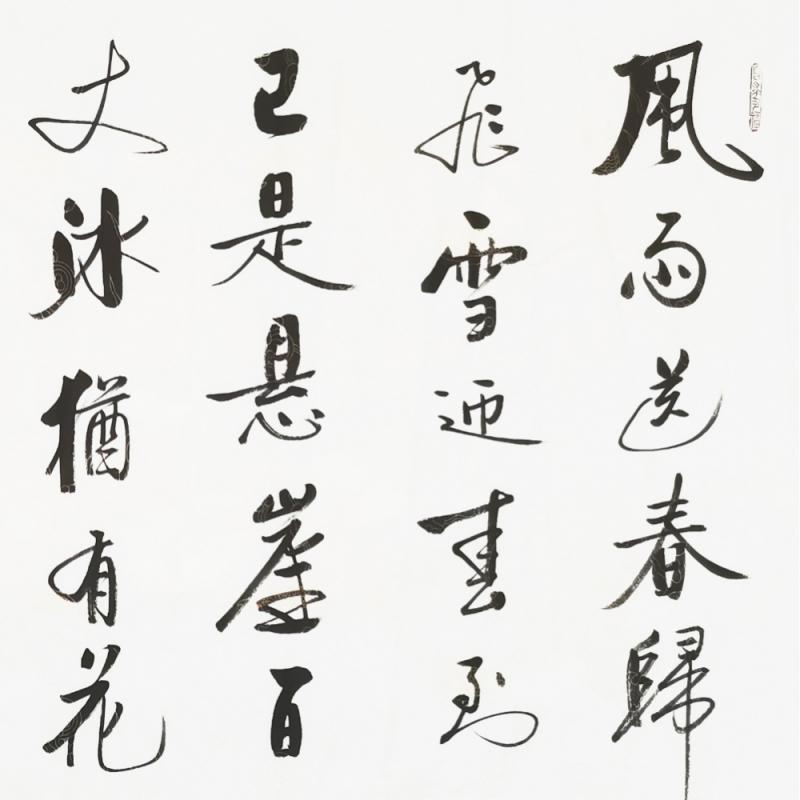 風雨送春歸
飛雪迎春到
已是悬崖百
丈冰猶有花